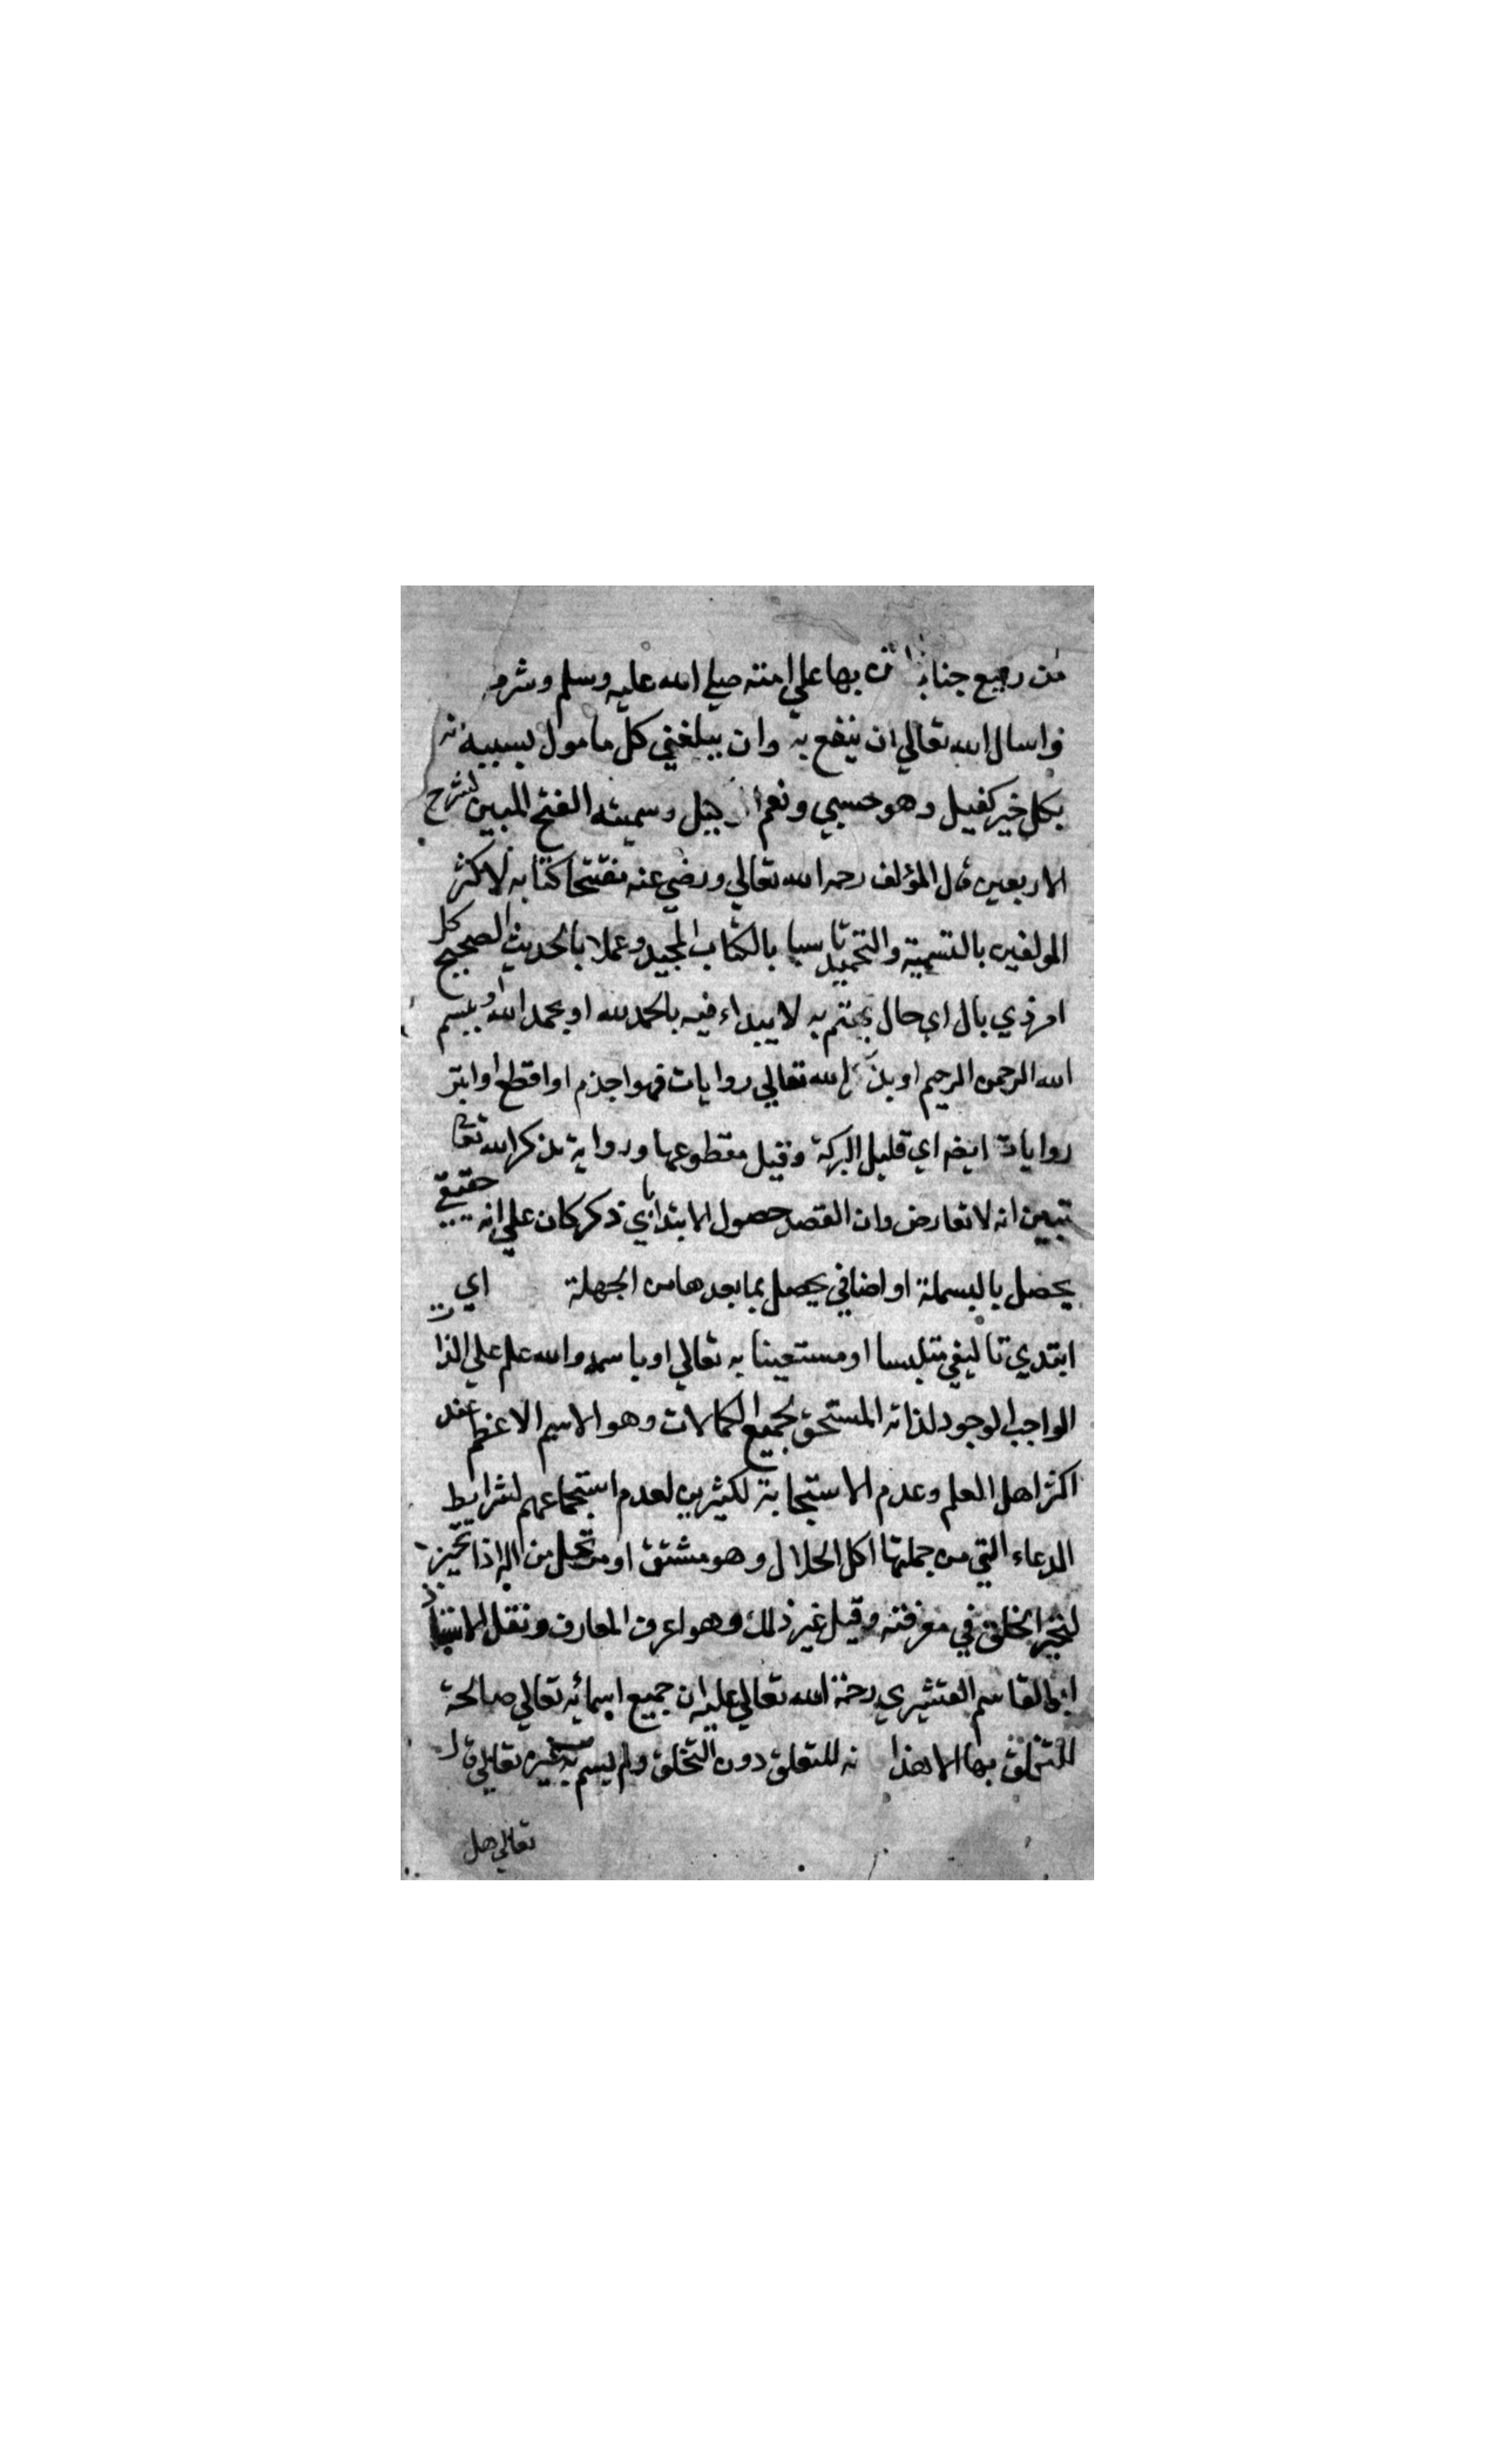 من رفيع جنابه بها على امته صلي الله عليه وسلم وشرف
واسال الله تعالي ان ينفع به وان يبلغني كل مامول بسببه انه
بكل خير كفيل وهو حسبي ونعم وسميته الفتح المبين لشرح
الاربعين قال المؤلف رحمه الله تعالي ورضي عنه مفتتحا كتابه لاكثر
المولفين بالتسمية والتحميد تاسيا بالكتاب المجيد وعملا بالحديث الصحيح كل
امر ذي بال اي حال يهتم به لا يبداء فيه بالحمد لله او بحمد الله او ببسم
الله الرحمن الرحيم او بذكر الله تعالي روايات فهو اجذم او اقطع او ابتر
روايات ايضا اي قليل البركة وقيل مقطوعها ورواية بذكر الله تعا
تبين انه لا تعارض وان القصد حصول الابتدا باي ذكر كان علي انه حقيقي
يحصل بالبسملة او اضافي يحصل بما بعدها من الجهلة اي
ابتدي تاليفي متلبسا او مستعينا به تعالي او باسمه والله علم علي الذا
الواجب الوجود لذاته المستحق لجميع الكمالات وهو الاسم الاعظم عند
اكثر اهل العلم وعدم الاستجابة لكثيرين لعدم استجماعهم لشرايط
الدعاء التي من جملتها اكل الحلال وهو مشتق او مرتجل من اله اذا تحير
لتحير الخلق في معرفته وقيل غير ذلك وهو اعرف المعارف ونقل الاستاذ
ابو القاسم القشيري رحمة الله تعالي عليه ان جميع اسمائه تعالي صالحة
للتخلق بها الا هذا نه للتعلق دون التخلق ولم يسم به غيره تعالي قال
تعالي هل